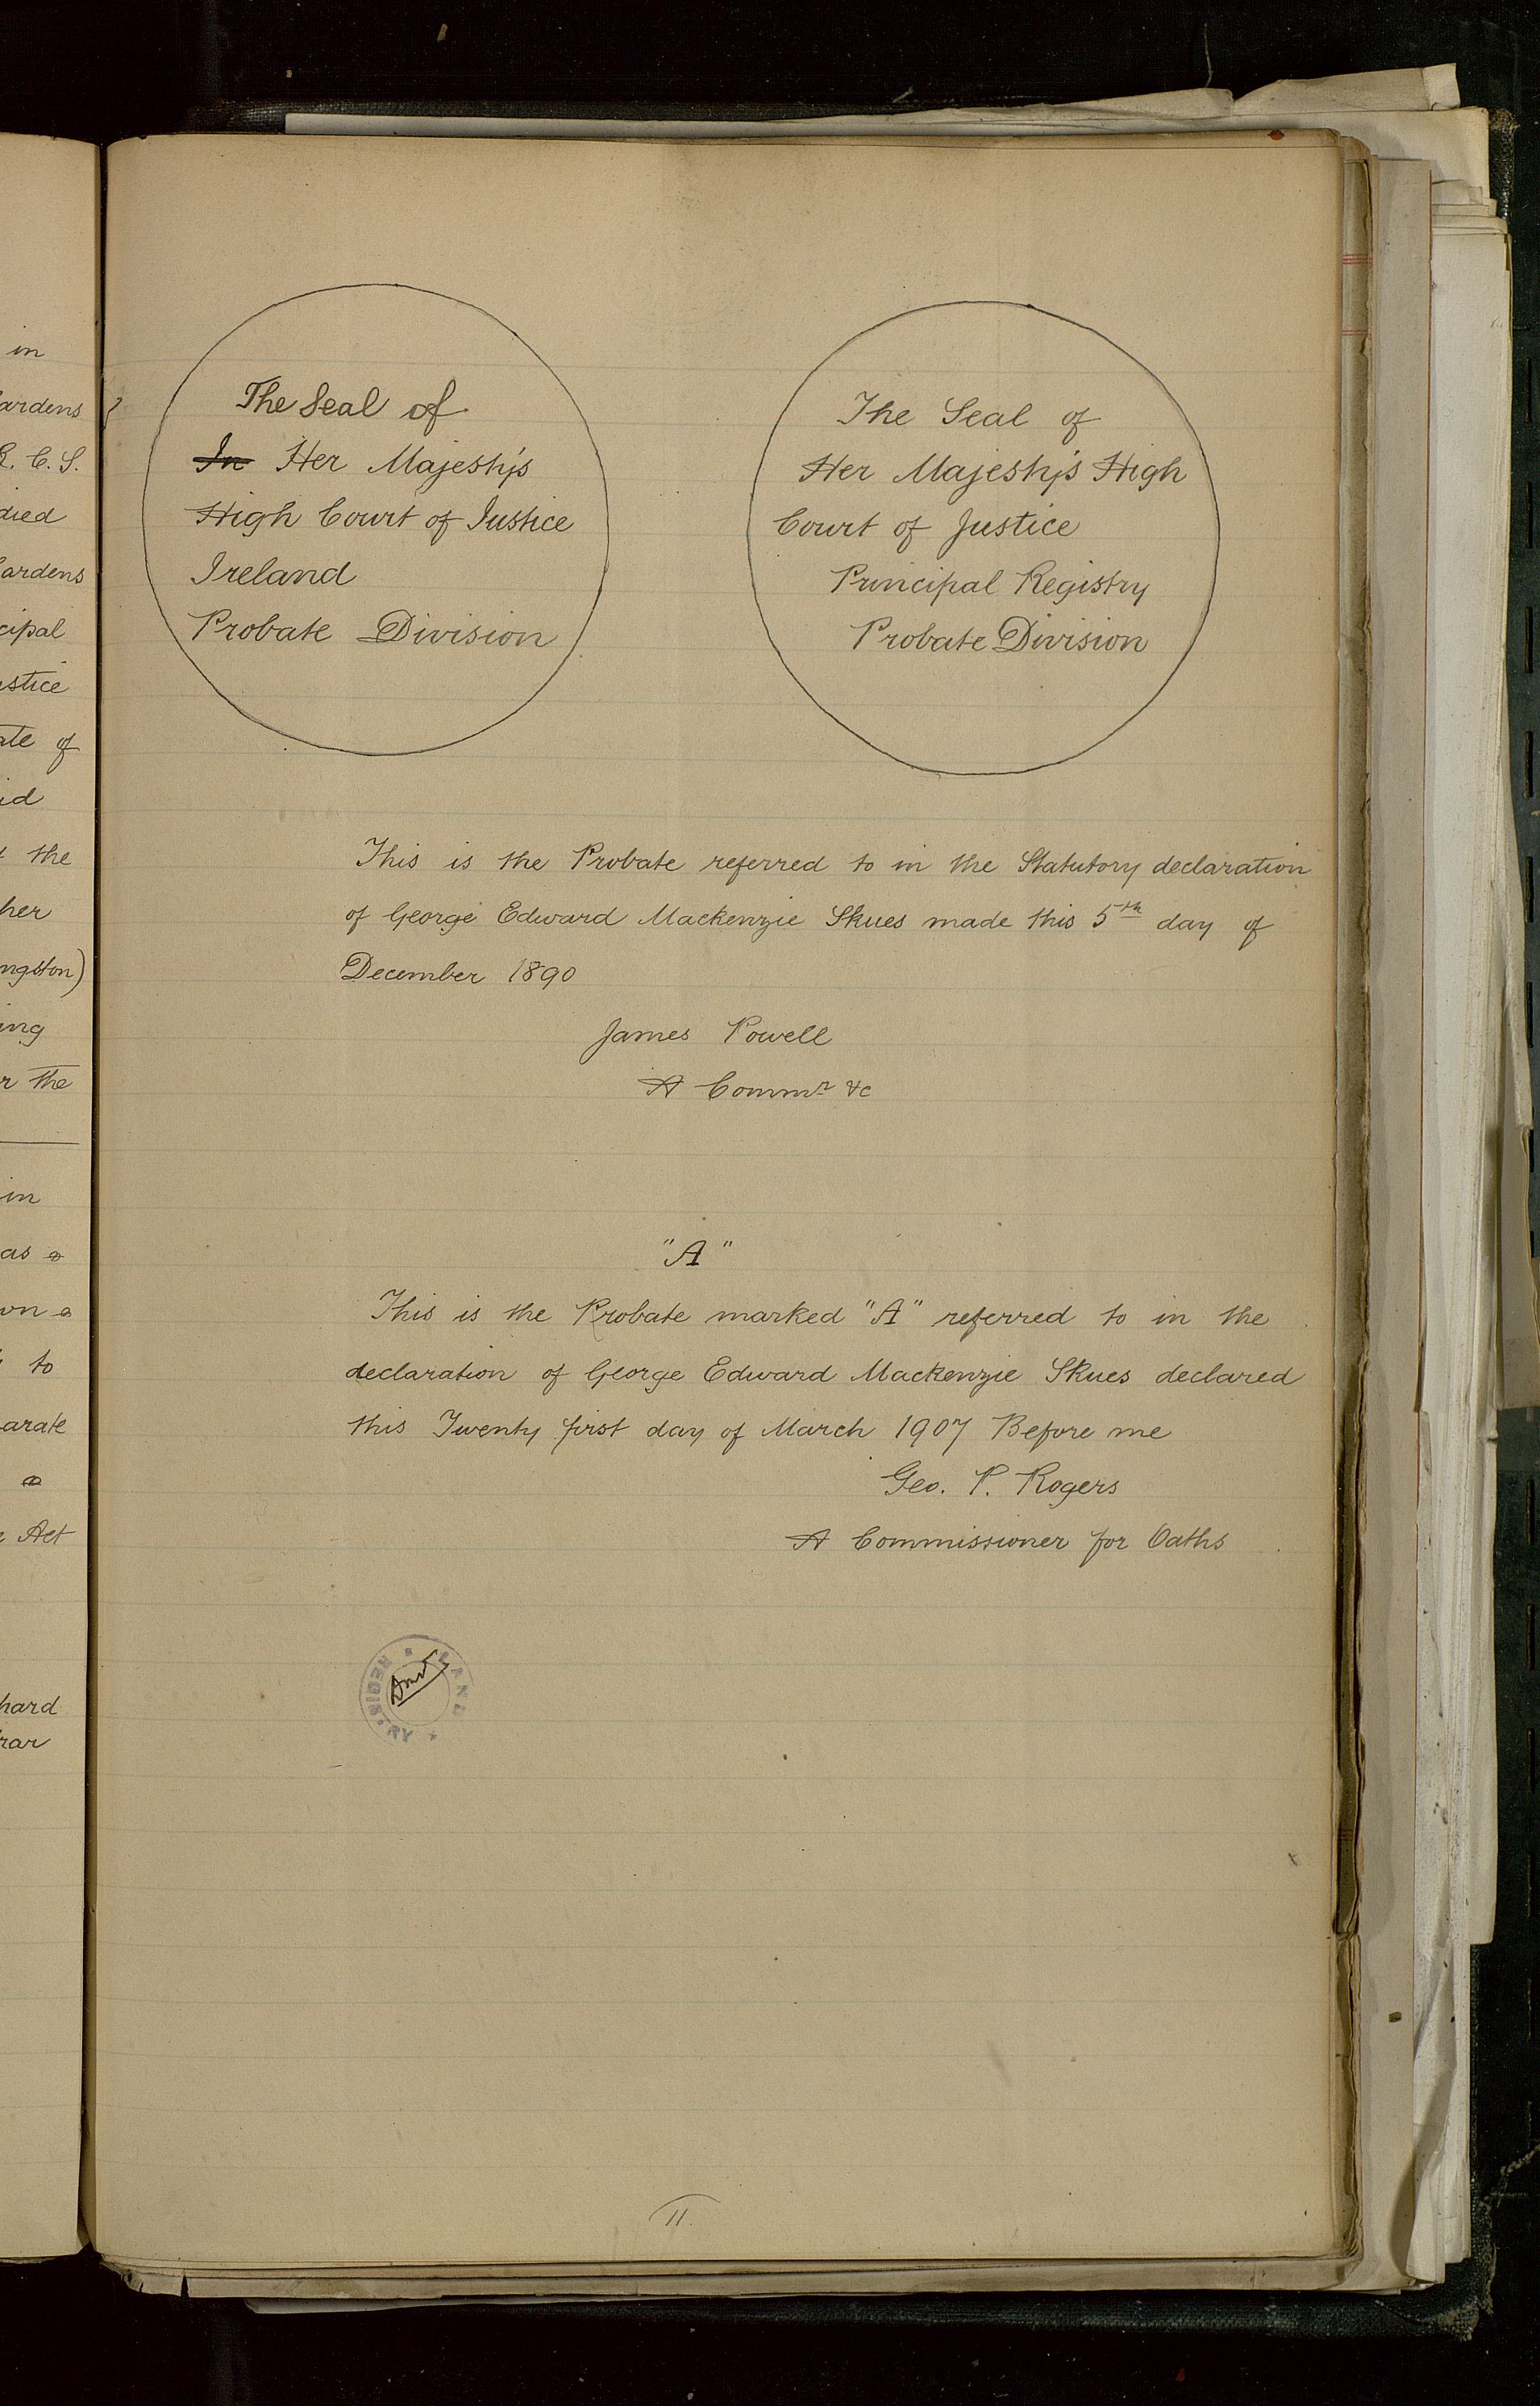 in
ardens
R. C. S.
died
Gardens
cipal
stice
ate of
id
the
her
ngston)
ing
r the
in
as
on
to
arate
Act
hard
rar
The Seal of
In Her Majesty's
High Court of Justice
Ireland
Probate Division
The Seal of
Her Majesty's High
Court of Justice
Principal Registry
Probate Division
This is the Probate referred to in the Statutory declaration
of George Edward Mackenzie Skues made this 5th day of
December 1890
James Powell
A Commr &c
"A"
This is the Probate marked "A" referred to in the
declaration of George Edward Mackenzie Skues declared
this Twenty first day of March 1907 Before me
Geo. P. Rogers
A Commissioner for Oaths
11.